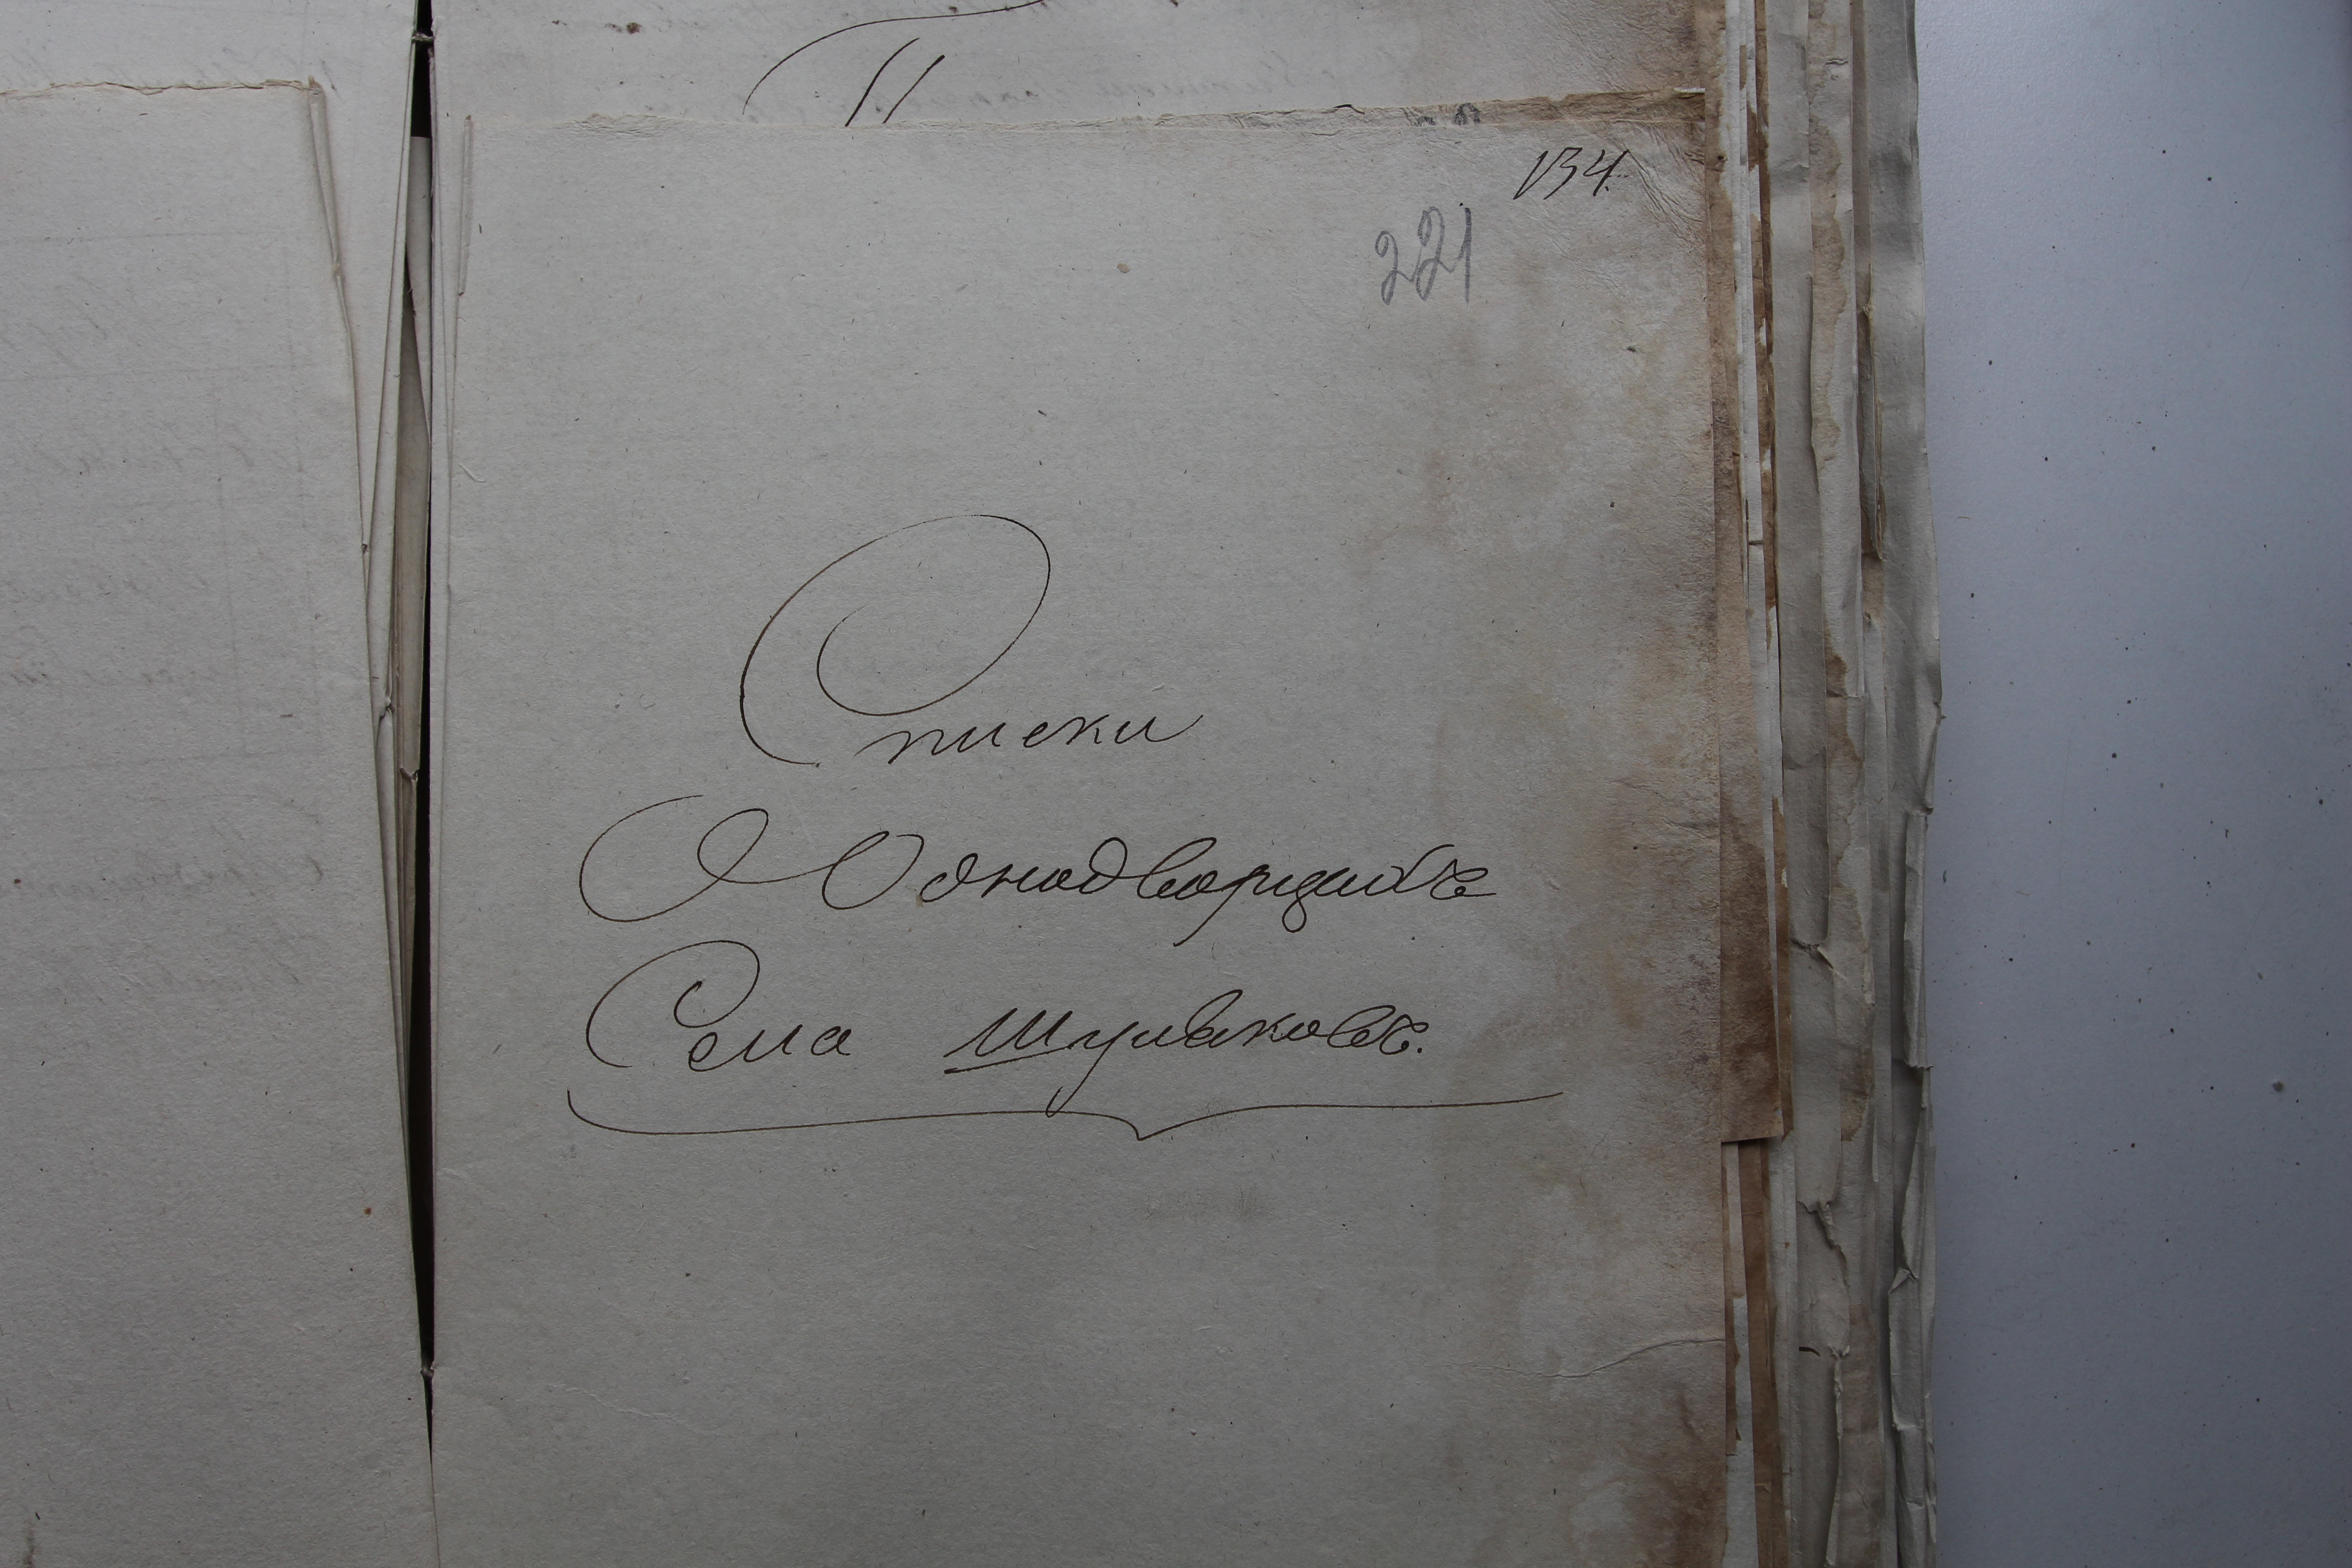 134.
221
Списки
О Однодворцахъ
Села Шуляковъ.